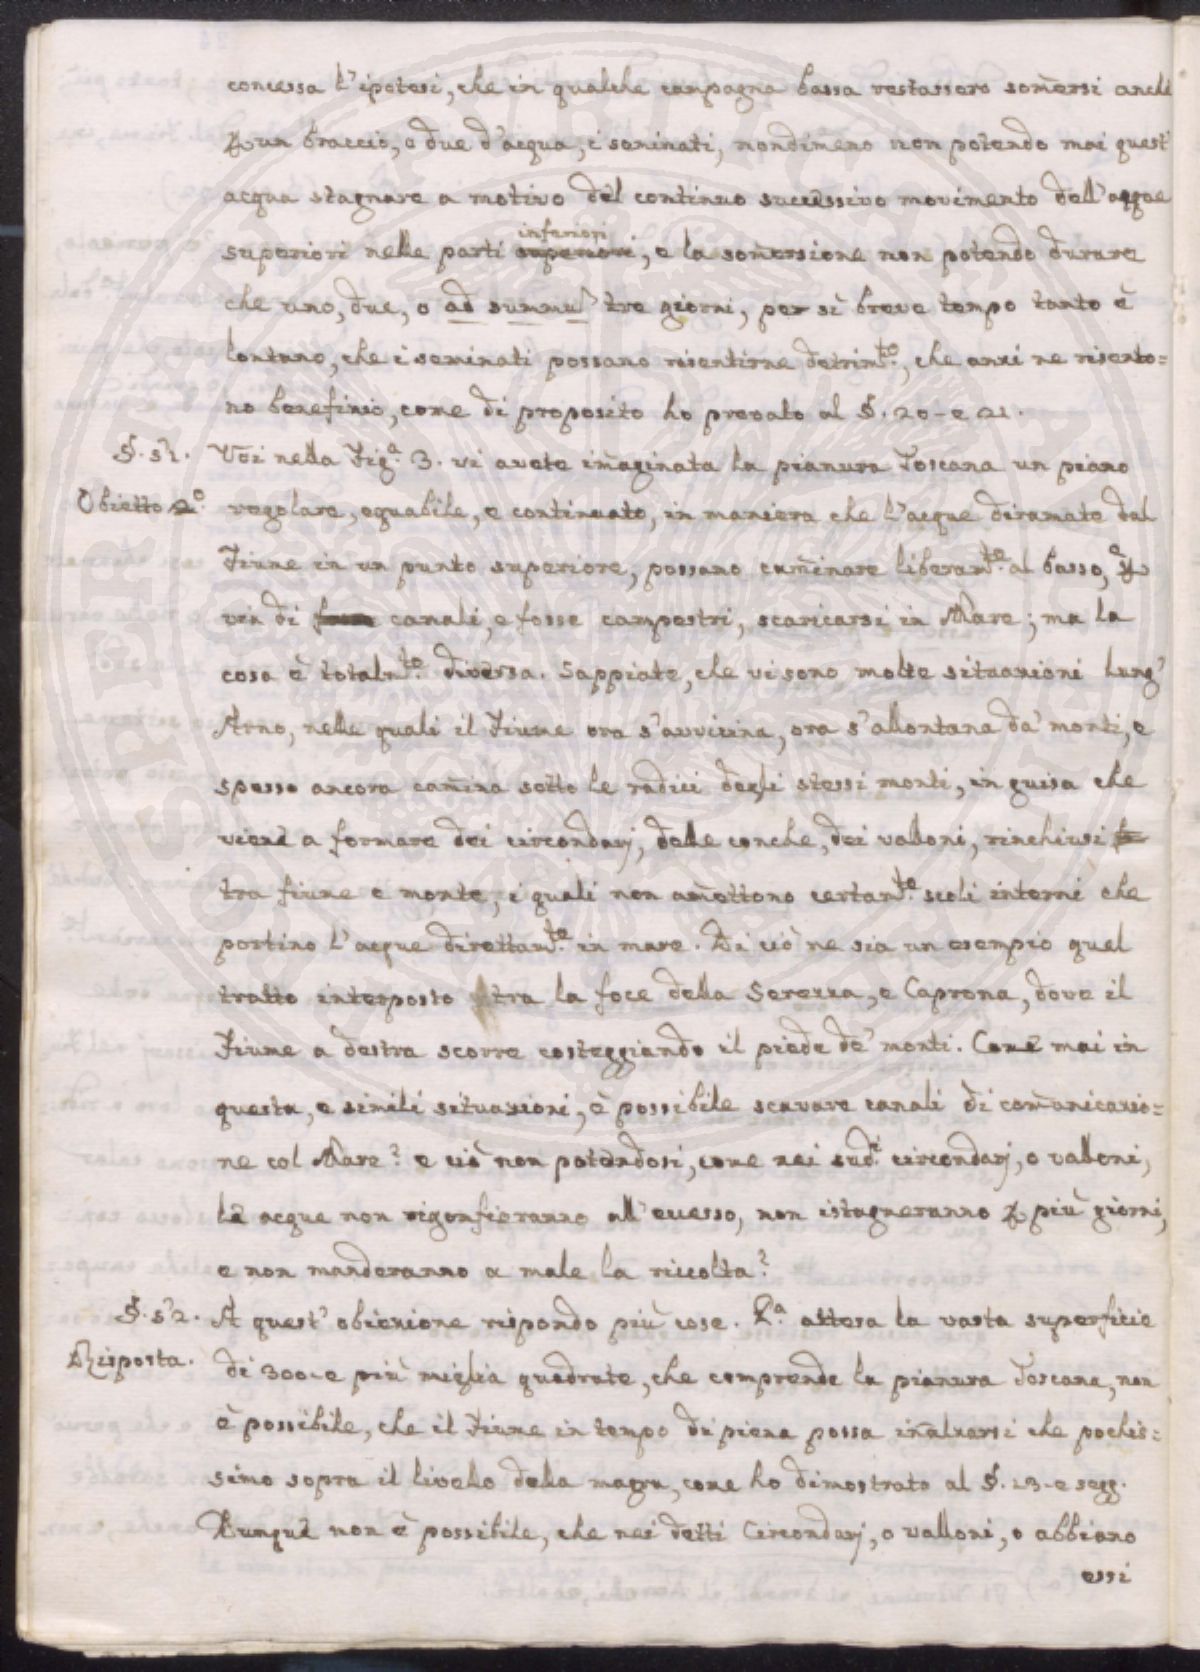 concessa l'ipotesi, che in qualche campagna bassa restassero som̄ersi anche
p un braccio, o due d'acqua, i seminati, nondimeno non potendo mai quest'
acqua stagnare a motivo del continuo successivo movimento dell'acque
inferiori
superiori nelle parti superiori, e la som̄ersione non potendo durare
che uno, due, o ad summū tre giorni, per sì breve tempo tanto è
lontano, che i seminati possano risentirne detrim.to, che anzi ne risento=
no benefizio, come di proposito ho provato al §. 20 - e 21.
§. 51. Voi nella Fig.a 3. vi avete im̄aginata la pianura Toscana un piano
Obietto 2.o regolare, eguabile, e continuato, in maniera che l'acque diramate dal
Fiume in un punto superiore, possano cam̄inare liberam.te al basso, e p
via di canali, e fosse campestri, scaricarsi in Mare; ma la
cosa è totalm.te diversa. Sappiate, che vi sono molte situazioni lung'
Arno, nelle quali il Fiume ora s'avvicina, ora s'allontana da' monti, e
spesso ancora cam̄ina sotto le radici degli stessi monti, in guisa che
viene a formare dei circondarj, delle conche, dei valloni, rinchiusi
tra fiume e monte, i quali non am̄ettono certam.te scoli interni che
portino l'acque direttam.te in mare. Di ciò ne sia un esempio quel
tratto interposto tra la foce della Serezza, e Caprona, dove il
Fiume a destra scorre costeggiando il piede de' monti. Come mai in
questa, e simili situazioni, è possibile scavare canali di com̄unicazio=
ne col Mare? e ciò non potendosi, come nei sud.i circondarj, o valloni,
le acque non rigonfieranno all'eccesso, non istagneranno p più giorni,
e non manderanno a male la ricolta?
§. 52. A quest'obiezione rispondo più cose. P.a attesa la vasta superficie
Risposta. di 300 - e più miglia quadrate, che comprende la pianura Toscana, non
è possibile, che il Fiume in tempo di piena possa in̄alzarsi che pochis=
simo sopra il livello della magra, come ho dimostrato al §. 13 - e segg.
Dunque non è possibile, che nei detti Circondarj, o valloni, o abbiano
essi